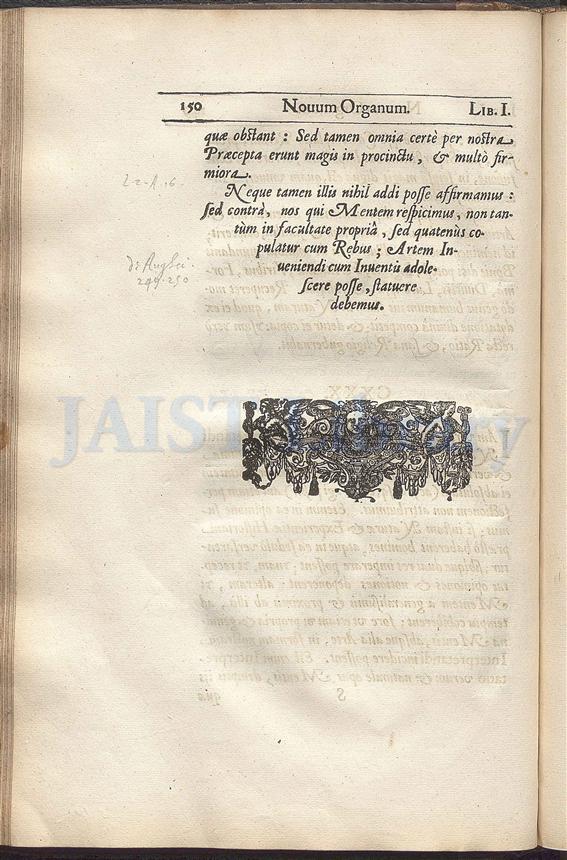 150 Nouum Organum. LIB. I.
quæ obstant : Sed tamen omnia certè per nostra
Præcepta erunt magis in procinctu, & multò fir-
miora.
Neque tamen illis nihil addi posse affirmamus :
sed contrà, nos qui Mentem respicimus, non tan-
tùm in facultate propriâ, sed quatenùs co-
pulatur cum Rebus ; Artem In-
ueniendi cum Inuentis adole-
scere posse, statuere
debemus.
249-250
JAIST Library